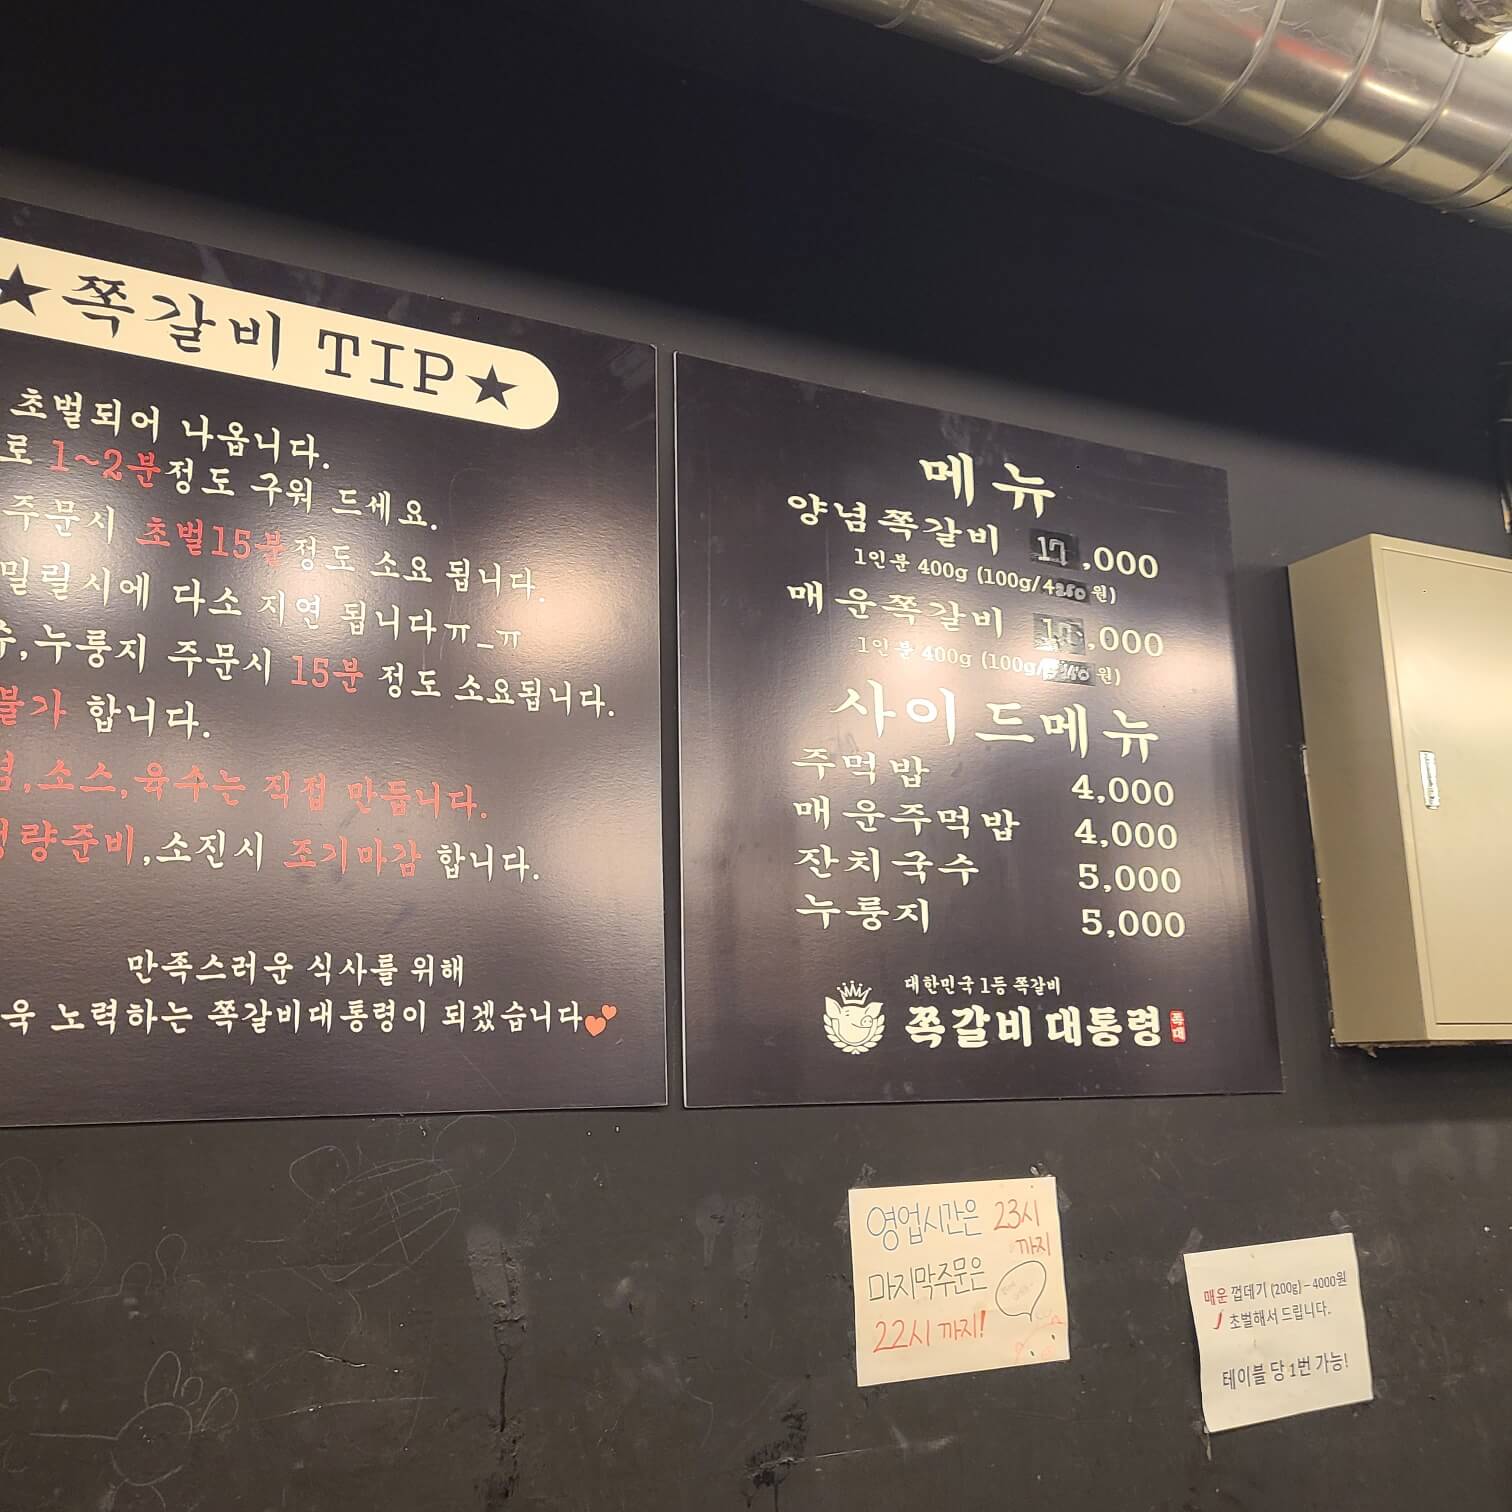 ★쪽갈비 TIP★
초벌되어 나옵니다.
로 1~2분정도 구워 드세요.
주문시 초벌15분정도 소요 됩니다.
밀릴시에 다소 지연 됩니다ㅠ_ㅠ
수,누룽지 주문시 15분 정도 소요됩니다.
불가 합니다.
념,소스,육수는 직접 만듭니다.
량준비,소진시 조기마감 합니다.
만족스러운 식사를 위해
욱 노력하는 쪽갈비대통령이 되겠습니다
메뉴
양념쪽갈비 17,000
1인분 400g (100g/4250원)
매운쪽갈비 ,000
1인분 400g (100g/ 원)
사이드메뉴
주먹밥 4,000
매운주먹밥 4,000
잔치국수 5,000
누룽지 5,000
대한민국 1등 쪽갈비
쪽갈비대통령 쪽대
영업시간은 23시
까지
마지막주문은
22시 까지!
매운 껍데기 (200g) - 4000원
초벌해서 드립니다.
테이블 당 1번 가능!